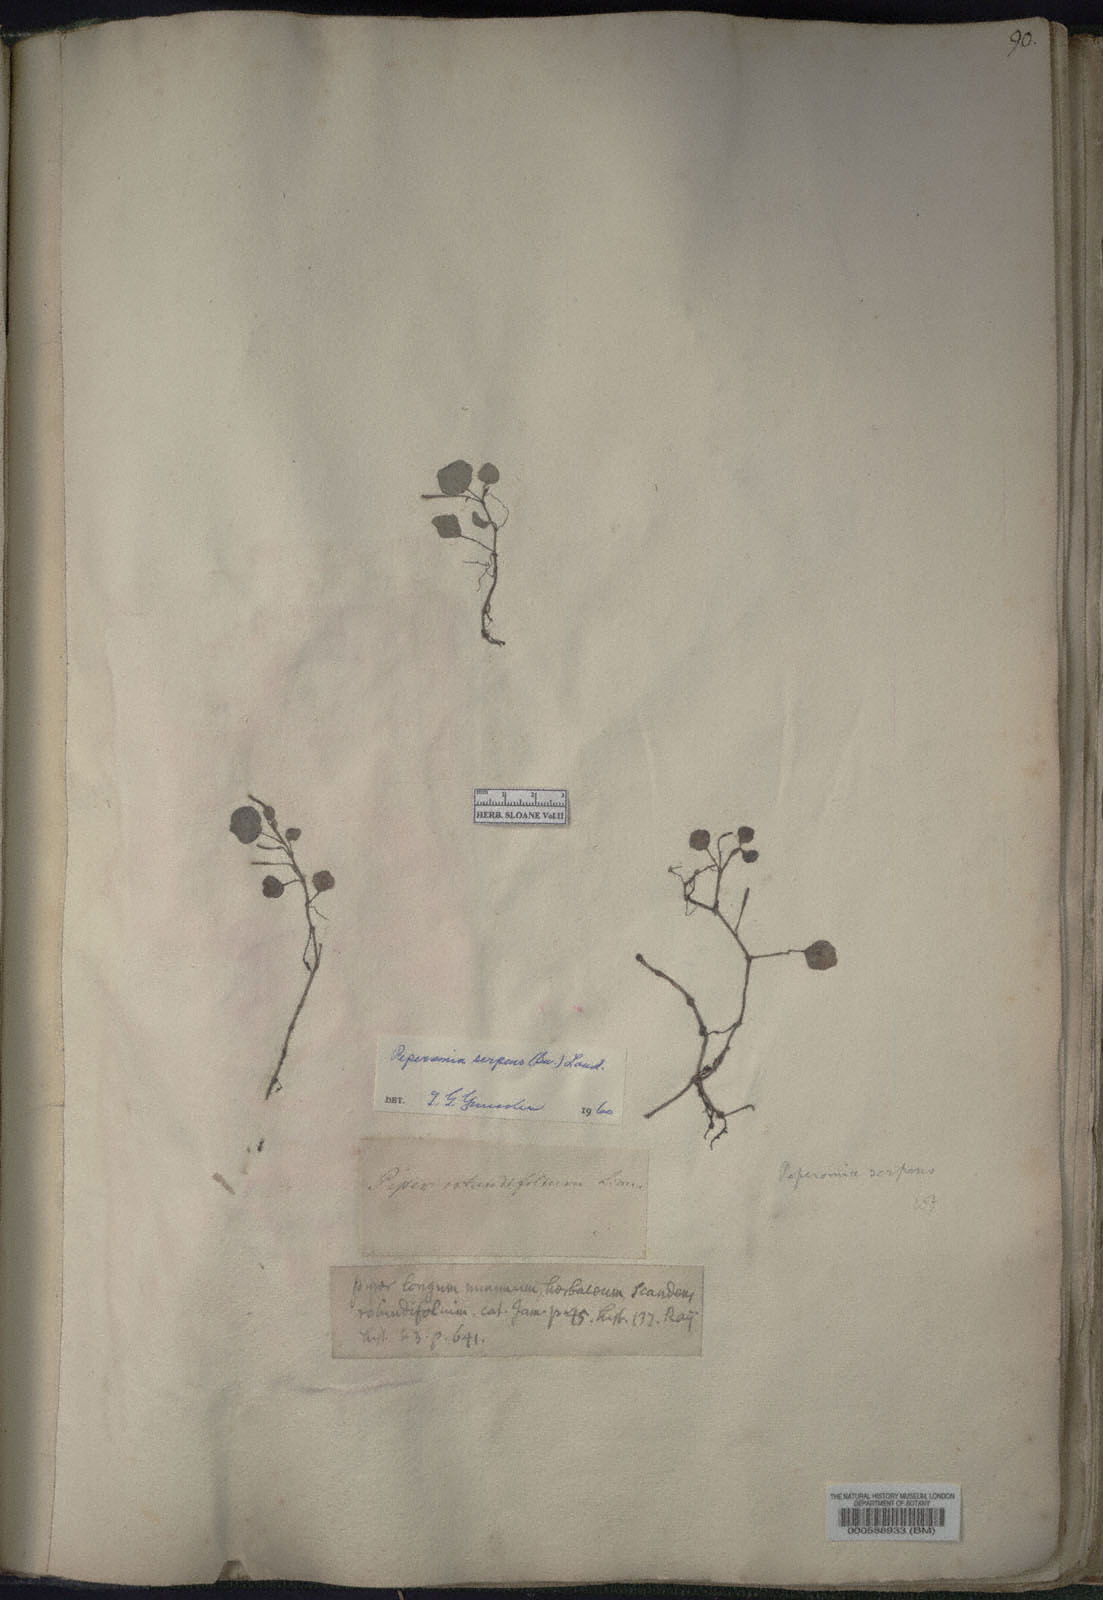 90.
mm 1 2 3
HERB. SLOANE Vol.II
Peperomia serpens (Sw.) Loud.
DET. 1960
Piper rotundifolium Linn.
Peperomia serpens
piper longum minimum, herbaceum scandens
rotundifolium. cat. Jam. p. 45. hist. 137. Raij
hist. t. 3. p. 641.
THE NATURAL HISTORY MUSEUM, LONDON
DEPARTMENT OF BOTANY
000588933 (BM)